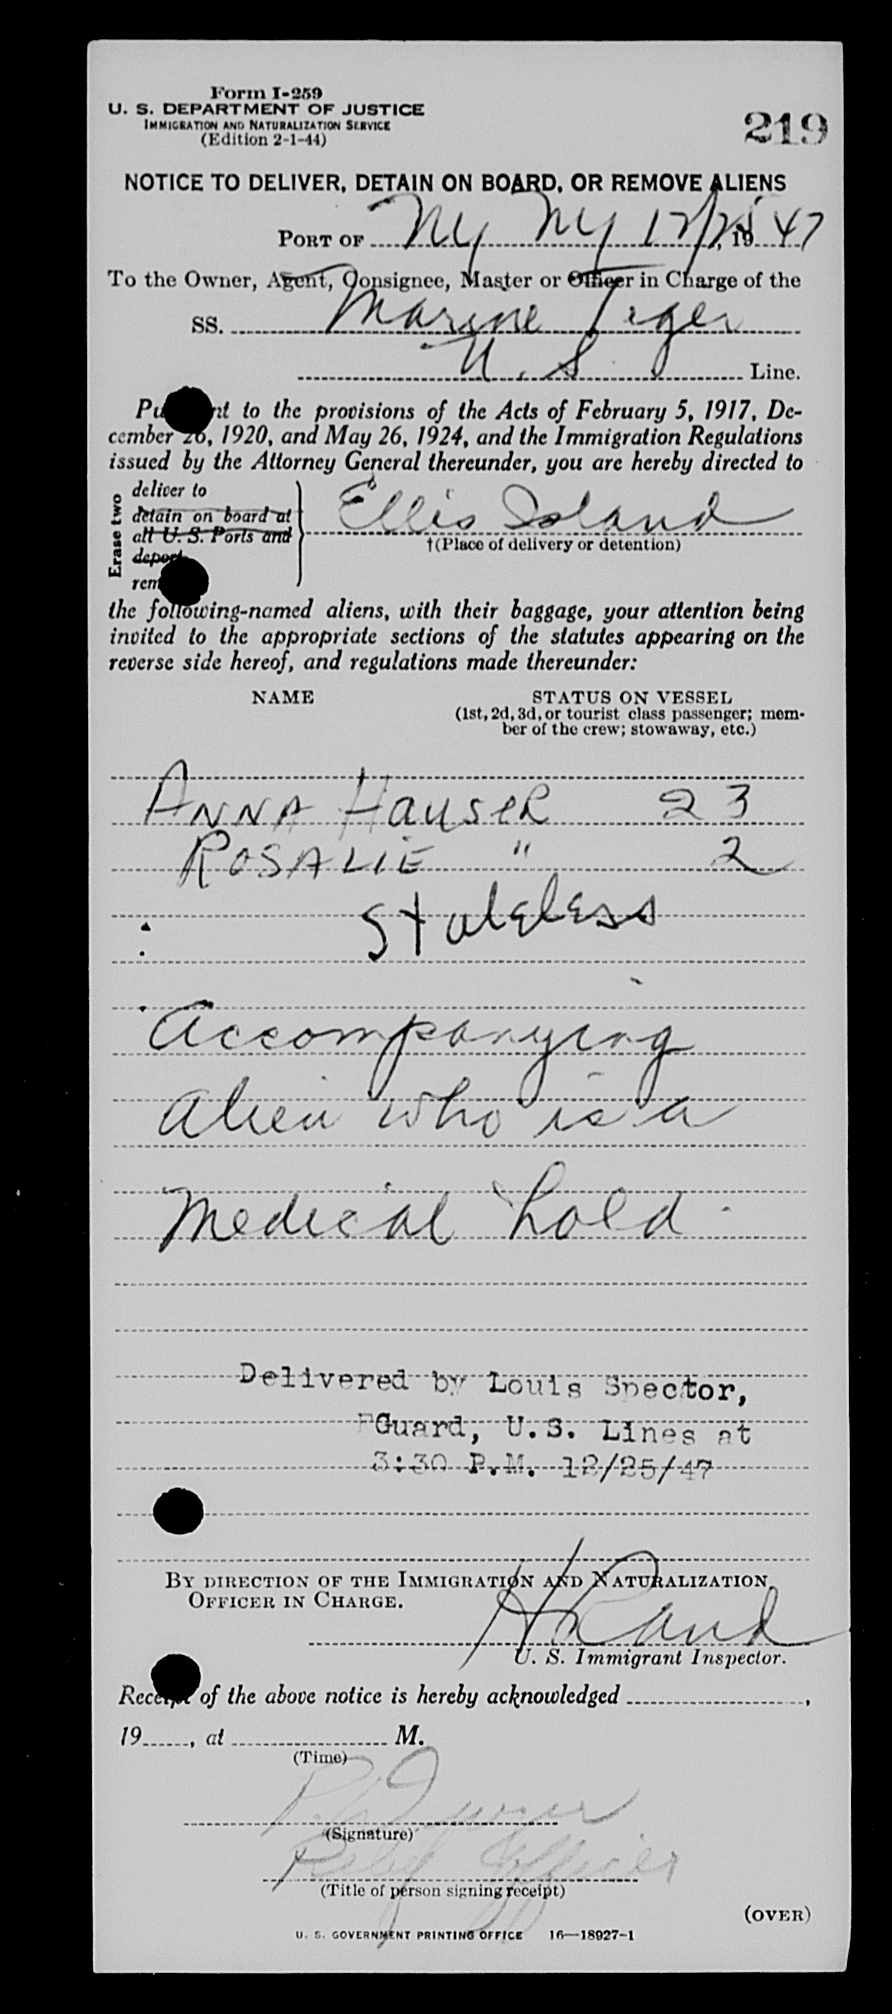 Form I-259
U. S. DEPARTMENT OF JUSTICE
IMMIGRATION AND NATURALIZATION SERVICE
(Edition 2-1-44)
219
NOTICE TO DELIVER, DETAIN ON BOARD, OR REMOVE ALIENS
PORT OF NY NY 12/25, 1947
To the Owner, Agent, Consignee, Master or Officer in Charge of the
SS. Marine Tiger
U. S. Line.
to the provisions of the Acts of February 5, 1917, De-
cember 26, 1920, and May 26, 1924, and the Immigration Regulations
issued by the Attorney General thereunder, you are hereby directed to
Erase two
deliver to
detain on board at
all U. S. Ports and
deport
Ellis Island
†(Place of delivery or detention)
the following-named aliens, with their baggage, your attention being
invited to the appropriate sections of the statutes appearing on the
reverse side hereof, and regulations made thereunder:
NAME STATUS ON VESSEL
(1st, 2d, 3d, or tourist class passenger; mem-
ber of the crew; stowaway, etc.)
ANNA HAUSER 23
ROSALIE " 2
Stateless
Accompanying
alien who is a
Medical hold.
Delivered by Louis Spector,
Guard, U.S. Lines at
3:30 P.M. 12/25/47
BY DIRECTION OF THE IMMIGRATION AND NATURALIZATION
OFFICER IN CHARGE.
U. S. Immigrant Inspector.
Receipt of the above notice is hereby acknowledged ,
19 , at M.
(Time)
(Signature)
Officer
(Title of person signing receipt)
(OVER)
U. S. GOVERNMENT PRINTING OFFICE 16—18927-1